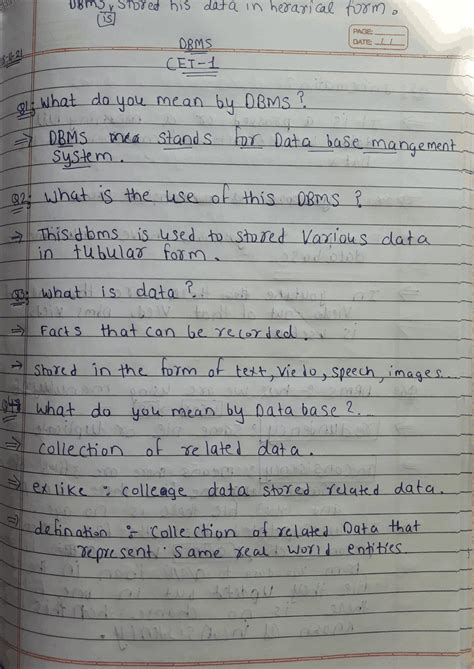 DBMS, stored his data in herarical form.
is
PAGE:
DATE: / /
DBMS
CET-1
Q1: What do you mean by DBMS?
⇒ DBMS stands for Data base mangement
system.
Q2: What is the use of this DBMS ?
→ This dbms is used to stored Various data
in tubular form.
Q3: what is data?
→ Facts that can be recorded.
→ stored in the form of text, Viedo, speech, images.
Q4: What do you mean by Data base?
⇒ collection of related data.
⇒ ex like : colleage data stored related data.
⇒ defination :- Collection of related Data that
represent same real world entities.